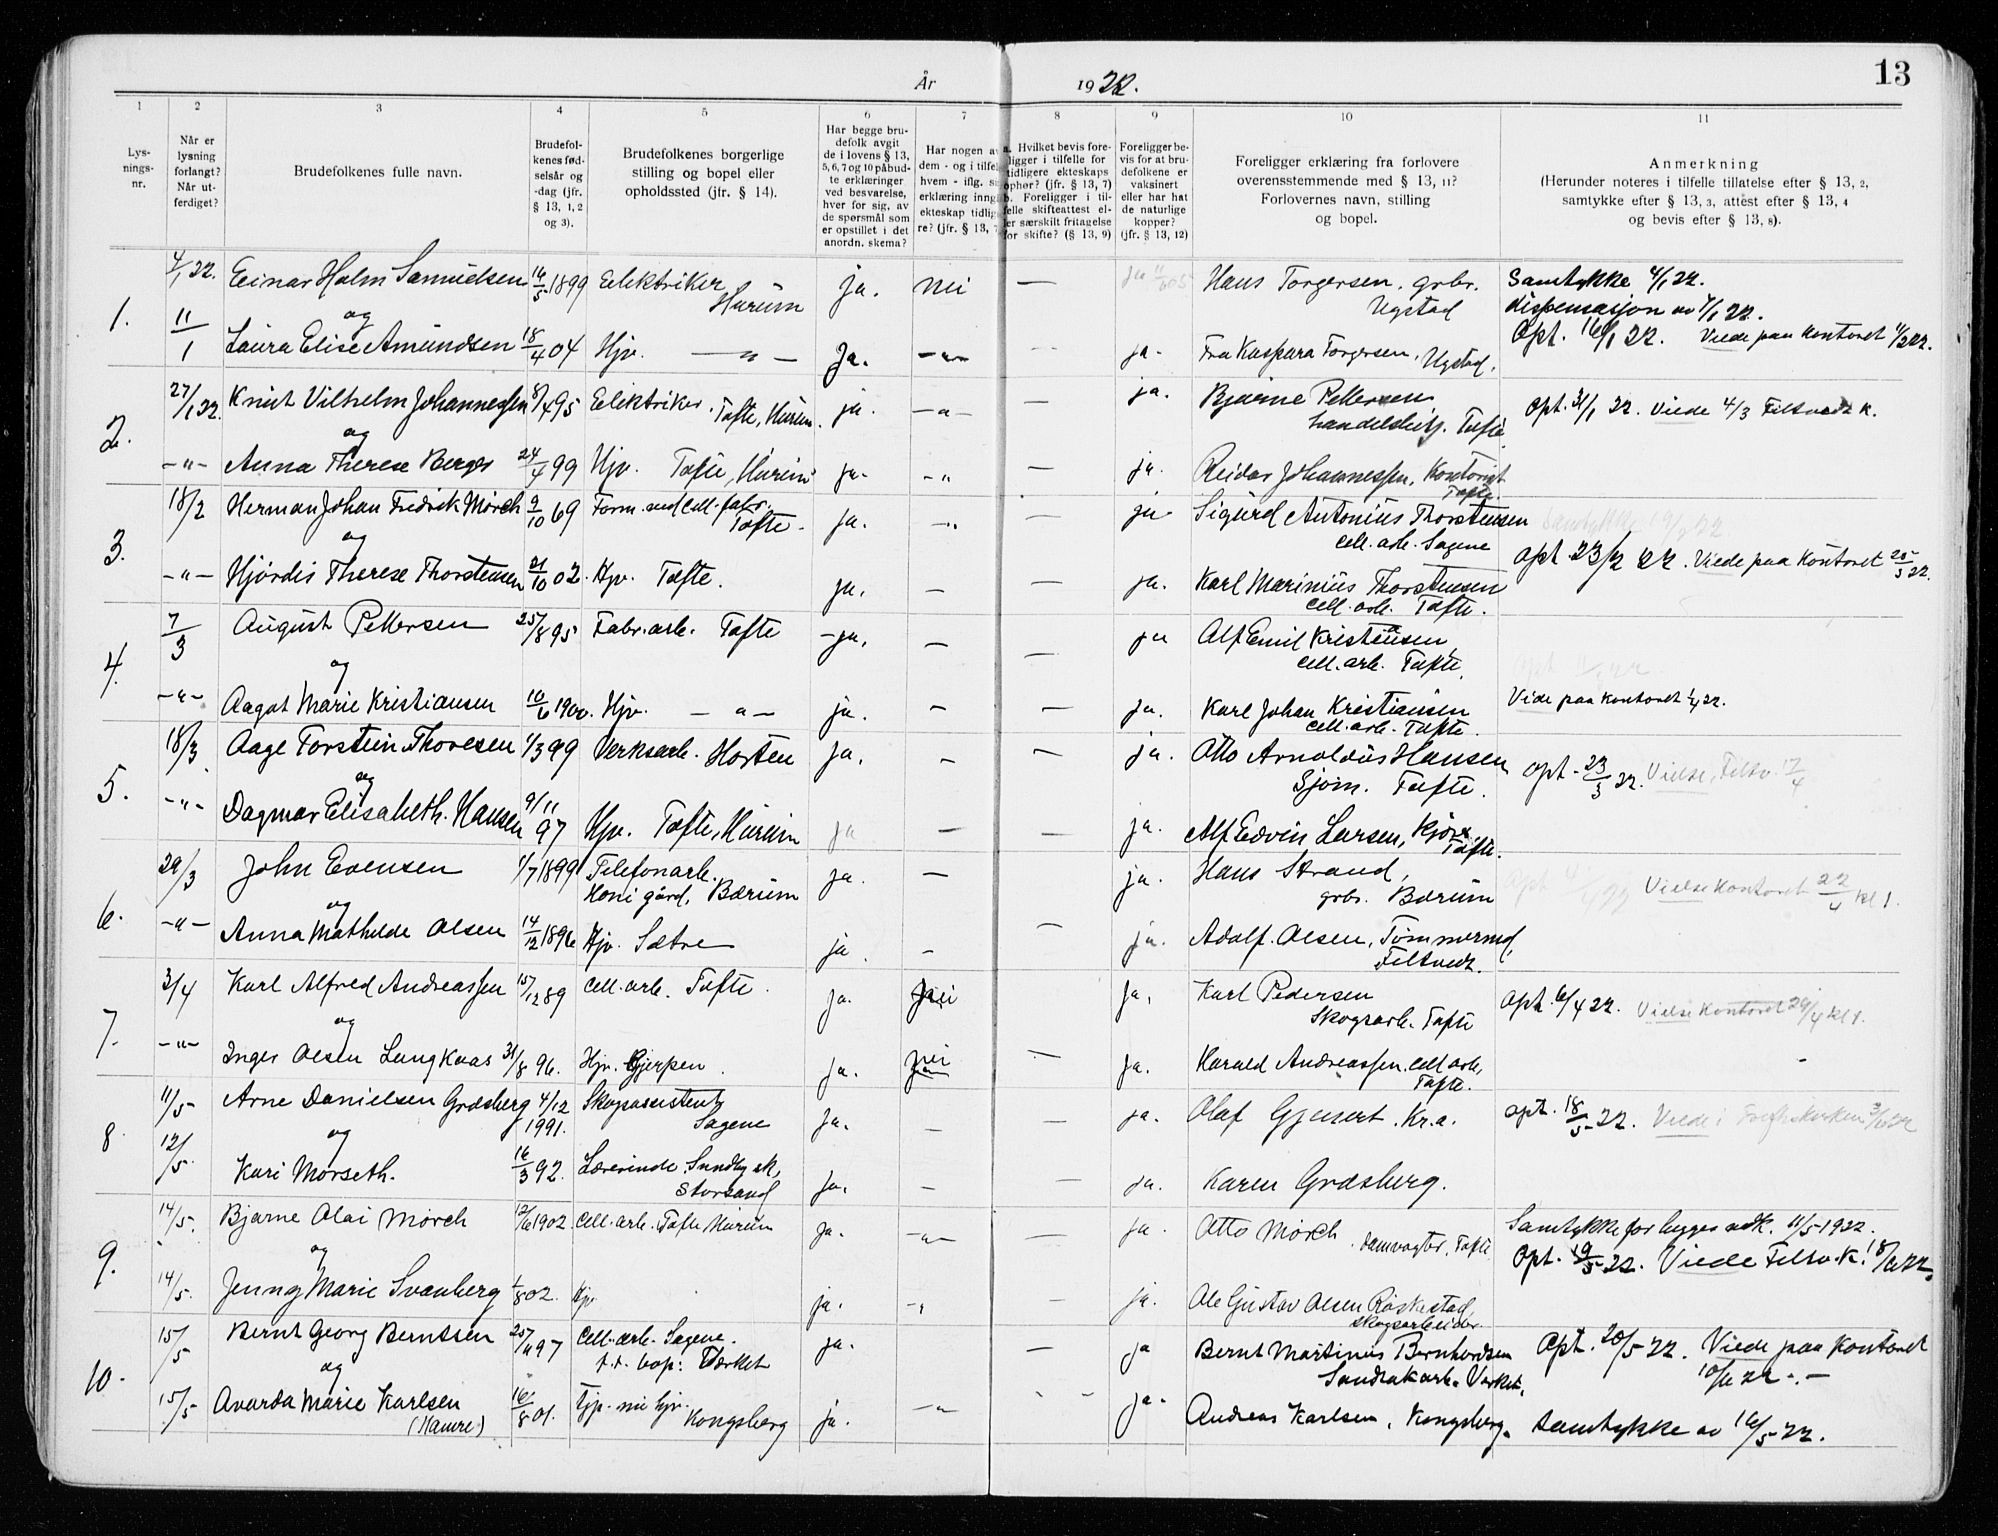 År 1922.
13
1 2 3 4 5 6 7 8 9 10 11
Lys-
nings-
nr.
Når er
lysning
forlangt?
Når ut-
ferdiget?
Brudefolkenes fulle navn.
Brudefol-
kenes fød-
selsår og
-dag (jfr.
§ 13, 1, 2
og 3).
Brudefolkenes borgerlige
stilling og bopel eller
opholdssted (jfr. § 14).
Har begge bru-
defolk avgit
de i lovens § 13,
5, 6, 7 og 10 påbud-
te erklæringer
ved besvarelse,
hver for sig, av
de spørsmål som
er opstillet i det
anordn. skema?
Har nogen av
dem - og i tilfel
hvem - iflg. s
erklæring inngå
ekteskap tidlig
re? (jfr. § 13, 7
a. Hvilket bevis fore-
ligger i tilfelle for
tidligere ekteskaps
ophør? (jfr. § 13, 7)
b. Foreligger i til-
felle skifteattest el-
ler særskilt fritagelse
for skifte? (§ 13, 9)
Foreligger be-
vis for at bru-
defolkene er
vaksinert
eller har hat
de naturlige
kopper?
(jfr. § 13, 12)
Foreligger erklæring fra forlovere
overensstemmende med § 13, 11?
Forlovernes navn, stilling
og bopel.
Anmerkning
(Herunder noteres i tilfelle tillatelse efter § 13, 2,
samtykke efter § 13, 3, attest efter § 13, 4
og bevis efter § 13, 8).
1.
4/1 22. Einar Holm Samuelsen 16/5 1899 Elektriker Hurum ja. nei — Hans Torgersen, grbr. Ugstad Samtykke 4/1 22.
dispensasjon av 7/1 22.
og
11/1 Laura Elise Amundsen 18/4 04 Hjv. —"— Ja. —"— — ja. Fru Kaspara Torgersen, Ugstad. Opt. 16/1 22. Viede paa Kontoret 11/2 22.
2.
27/1 22. Knut Vilhelm Johannessen 8/4 95 Elektriker. Tofte, Hurum. ja. —"— — ja. Bjarne Pettersen
handelsbetj. Tofte Opt. 31/1 22. Viede 4/3 Filtvedt k.
og
—"— Anna Therese Berger 24/4 99 Hjv. Tofte, Hurum ja. —" — ja. Reidar Johannessen, Kontorist
Tofte.
3.
18/2 Herman Johan Fredrik Mörch 9/10 69 Form. ved cell. fabr.
Tofte. ja. —"— — ja. Sigurd Antonius Thorstensen
cell. arb. Sagene Samtykke 19/2 22
og
—"— Hjördis Therese Thorstensen 21/10 02. Hjv. Tofte. ja. — — ja. Karl Marinius Thorstensen
cell. arb. Tofte. Opt. 23/2 22. Viede paa Kontoret 25/3 22.
4.
7/3 August Pettersen 25/8 95 Fabr. arb. Tofte ja. — — ja Alf Emil Kristiansen,
cell. arb. Tofte.
og
—"— Aagot Marie Kristiansen 10/6 1900. Hjv. —"— ja. — — ja. Karl Johan Kristiansen
cell. arb. Tofte. Viede paa Kontoret 1/4 22.
5.
18/3 Aage Torstein Thoresen 1/3 99 Verksarb. Horten ja. — — ja. Otto Arnoldus Hansen
Sjöm. Tofte. Opt. 23/3 22. Vielse, Filtv. 17/4
og
—"— Dagmar Elisabeth Hansen 9/11 97 Hjv. Tofte, Hurum ja — — ja. Alf Edvin Larsen,
Tofte.
6.
29/3 John Evensen 1/7 1899 Telefonarb.
Honi gård, Bærum ja. — ja. Hans Strand,
grbr. Bærum Opt 4/4 22 Vielse Kontoret 22/4 kl 1.
og
—"— Anna Mathilde Olsen 14/12 1896 Hjv. Sætre ja. — — ja. Adolf Olsen, Tömmermd,
Filtvedt.
7.
3/4 Karl Alfred Andreassen 15/12 89 cell. arb. Tofte. ja. nei ja. Karl Pedersen
Skogsarb. Tofte Opt. 6/4 22. Vielse Kontoret 29/4 kl 1.
og
—"— Inger Olsen Langkaas 31/8 96. Hjv. Gjerpen. ja. nei — ja. Harald Andreassen. cell arb.
Tofte.
8
11/5 Arne Danielsen Græsberg 4/12 1991. Skogassistent
Sagene ja. — — ja. Olaf Gjesert. Kr.a. Opt. 18/5 22. Viede i
og
12/5 Kari Morseth. 16/3 92. Lærerinde. Sundby sk,
Storsand ja. — — ja. Karen Græsberg.
9.
14/5. Bjarne Olai Mörch 12/6 1902. Cell. arb. Tofte Hurum ja. —"— — ja. Otto Mörch. damvogter, Tofte Samtykke for begges vedk. 11/5-1922.
Opt. 19/5 22. Viede Filtv. K. 18/6 22.
og
14/5. Jenny Marie Svanberg 1/8 02. Hjv ja. —" — ja. Ole Gustav Olsen Röskestad,
skogsarbeider.
10.
15/5 Bernt Georg Berntsen 25/4 97 Cell. arb. Sagene.
f.t. bop: Værket ja. — ja Bernt Martinus Bernhardsen
Sandsakarb. Verket. Opt. 20/5 22. Viede paa Kontoret
10/6 22 -.-
og
15/5 Avarda Marie Karlsen
(Hamre) 16/8 01. Tjp. nu hjv.
Kongsberg ja. —" - - ja. Andreas Karlsen, Kongsberg. Samtykke av 16/5 22.